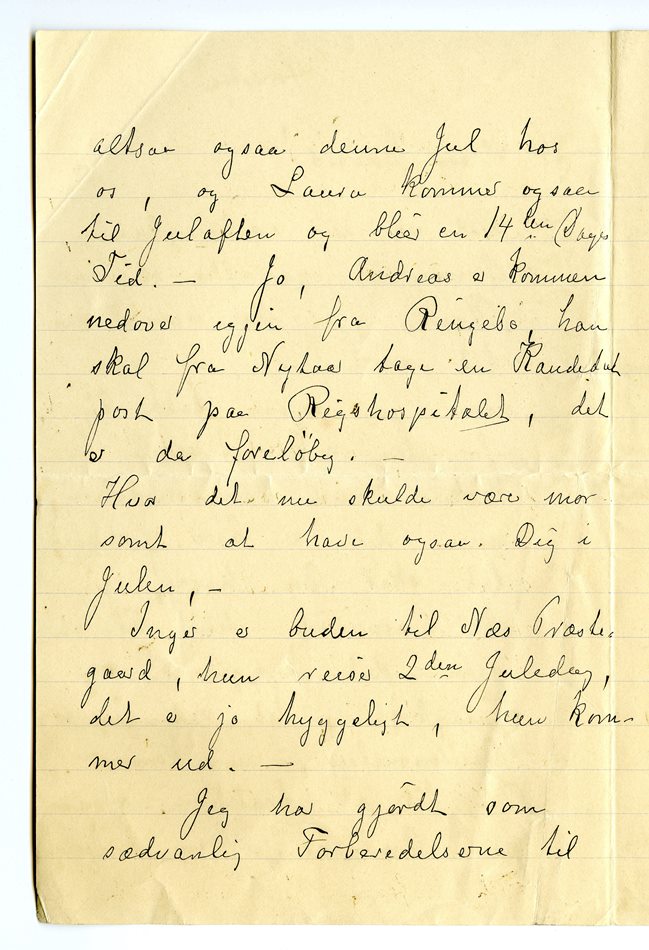 altsaa ogsaa denne Jul hos
os, og Laura kommer ogsaa
til Julaften og blier en 14 ten Dages
Tid. — Jo, Andreas er kommen
nedover igjen fra Ringebo, han
skal fra Nytaar tage en Kandidat
post paa Rigshospitalet, det
er da foreløbig. —
Hvor det nu skulde være mor
somt at have ogsaa Dig i
Julen, —
Inger er buden til Næs Præste-
gaard, hun reiser 2den Juledag,
det er jo hyggeligt, hun kom-
mer ud. —
Jeg har gjørdt som
sædvanlig Forberedelserne til